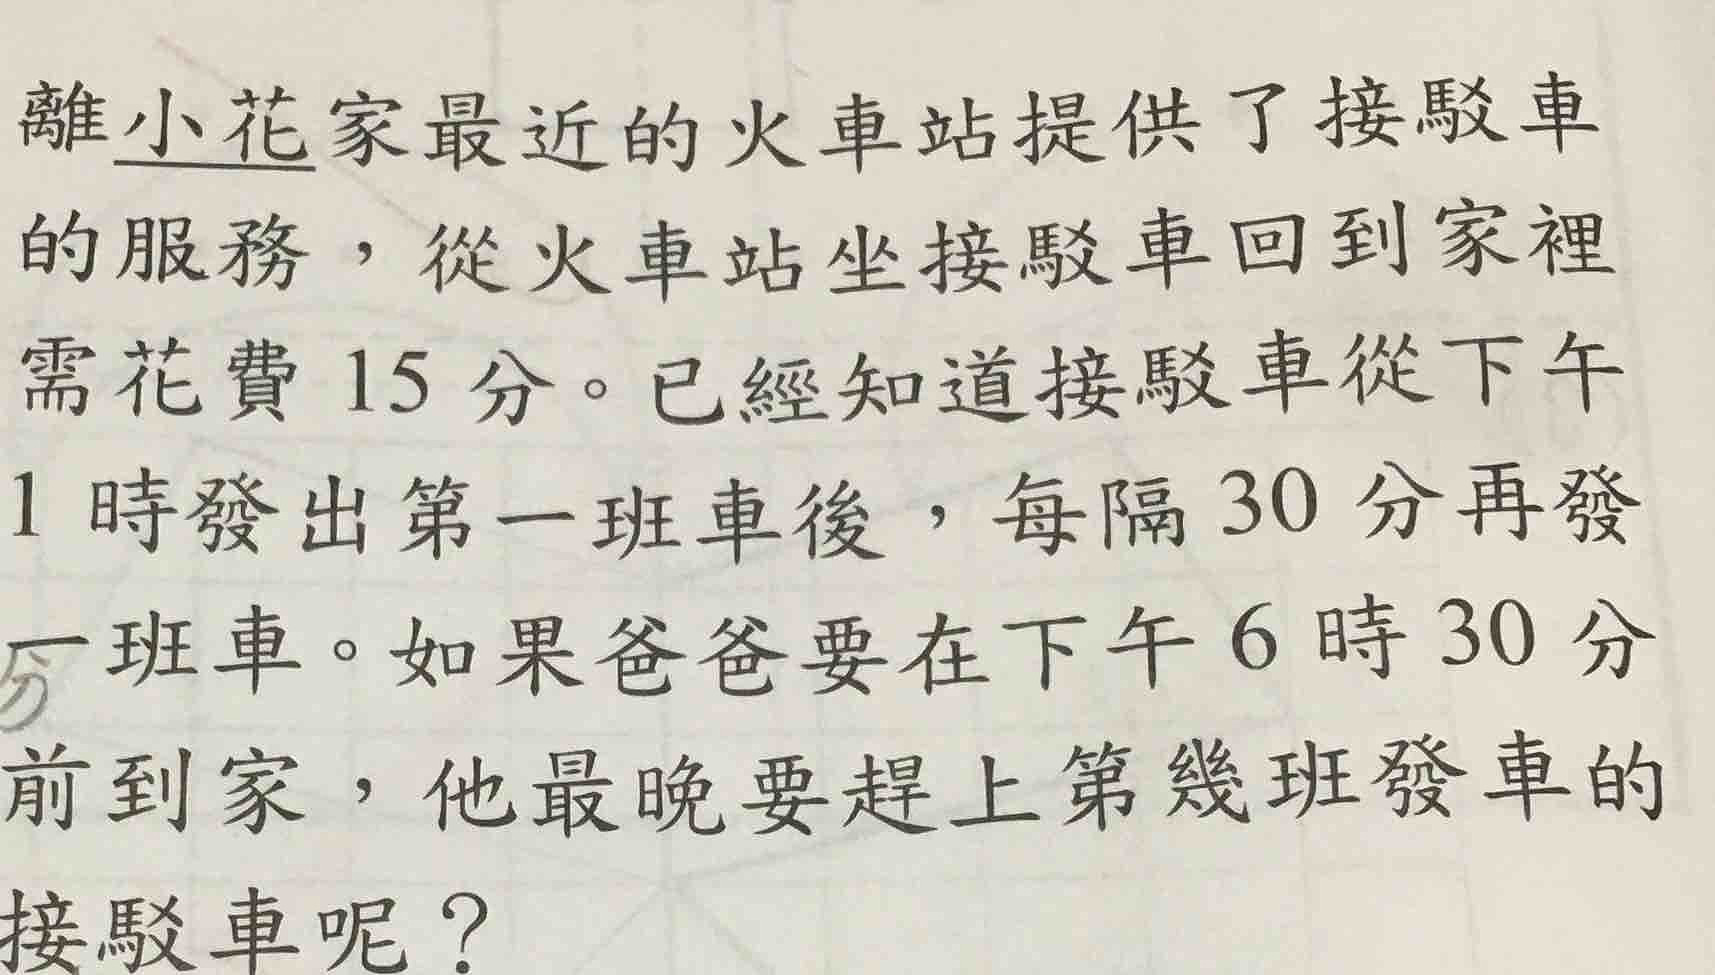 離小花家最近的火車站提供了接駁車
的服務，從火車站坐接駁車回到家裡
需花費 15 分。已經知道接駁車從下午
1 時發出第一班車後，每隔 30 分再發
一班車。如果爸爸要在下午 6 時 30 分
分
前到家，他最晚要趕上第幾班發車的
接駁車呢？